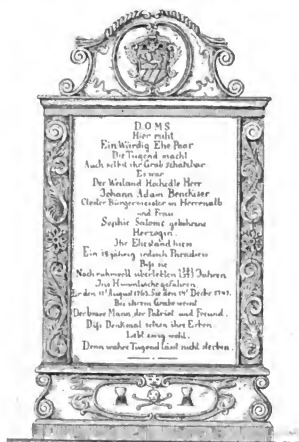 D.O.M.S
Hier ruht
Ein Würdig Ehe Paar
Die Tugend macht
Auch selbst ihr Grab schatzbar
Es war
Der Weiland Hochedle Herr
Johann Adam Benckiser
Closter Bürgermeister in Herrenalb
und Frau
Sophie Salome gebohrne
Herzogin.
Ihr Ehestand hiess
Ein 18jährig irdisch Paradiess
Biss sie
Nach ruhmvoll überlebten Jahren
Ins Himmlische gefahren.
Er den 11ᵗ August 1763. Sie den 14ᵗ Decbr
Bei ihrem Grabe weint
Der brave Mann, der Patriot und Freund.
Diss Denkmal setzen ihre Erben.
Lebt ewig wohl.
Denn wahre Tugend lässt nicht sterben.